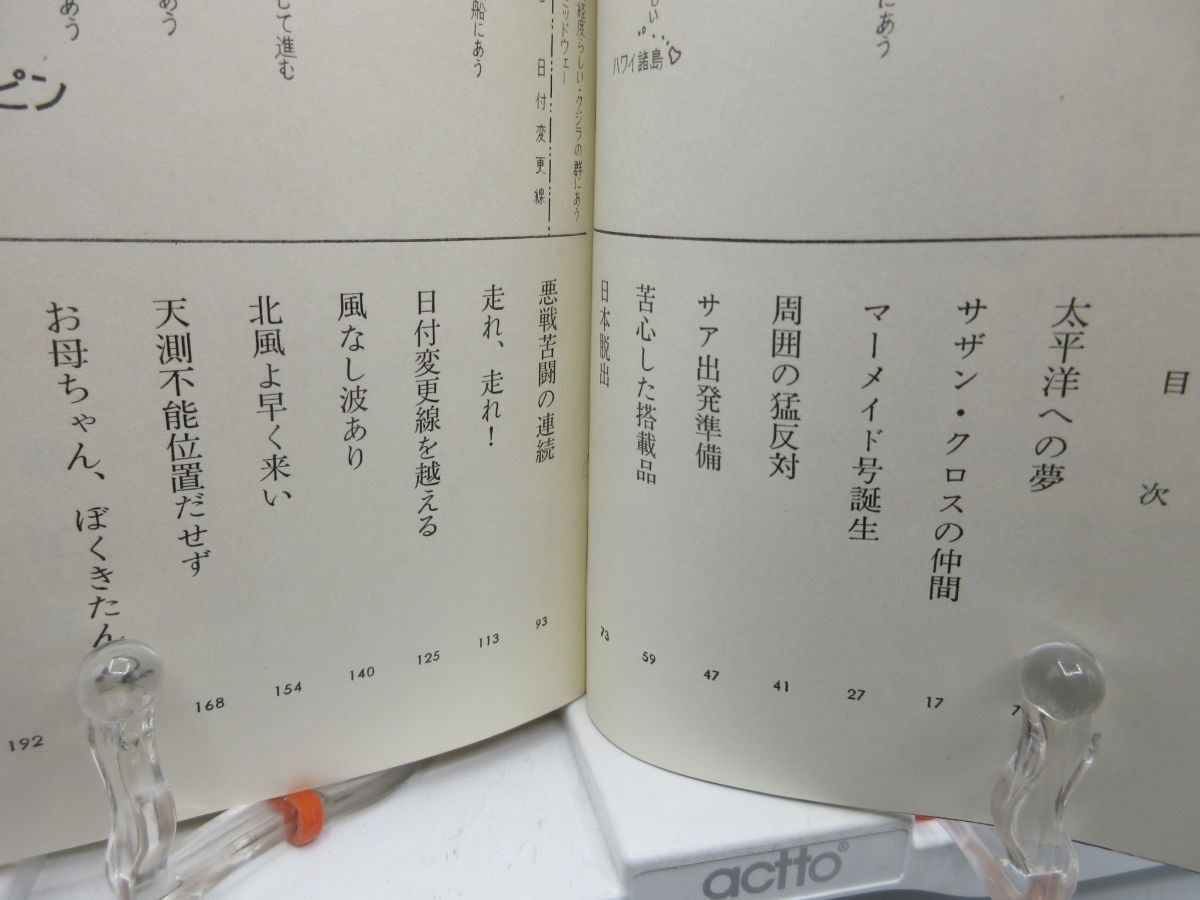 目次
太平洋への夢
7
サザン・クロスの仲間
17
マーメイド号誕生
27
周囲の猛反対
41
サア出発準備
47
苦心した搭載品
59
日本脱出
73
悪戦苦闘の連続
93
走れ、走れ!
113
日付変更線を越える
125
風なし波あり
140
北風よ早く来い
154
天測不能位置だせず
168
お母ちゃん、ぼくきたん
192
にあう
ハワイ諸島
経度らしい・クジラの群にあう
ッドウェー
日付変更線
船にあう
して進む
あう
あう
ピン
actto®